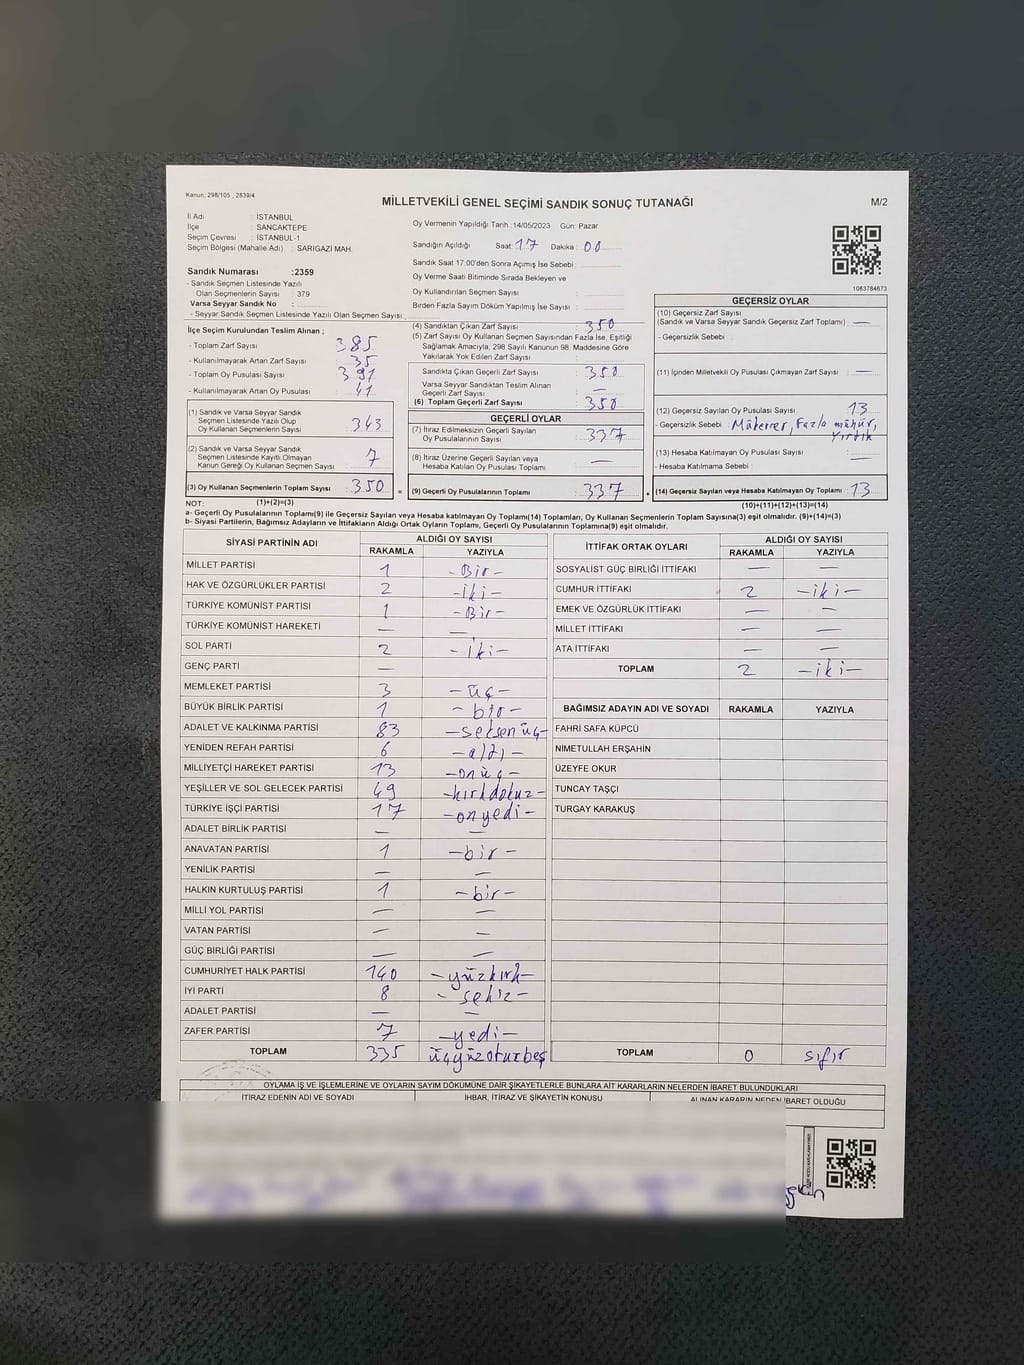 Kanun: 298/105 , 2839/4
MİLLETVEKİLİ GENEL SEÇİMİ SANDIK SONUÇ TUTANAĞI
M/2
İl Adı : İSTANBUL
İlçe : SANCAKTEPE
Seçim Çevresi : İSTANBUL-1
Seçim Bölgesi (Mahalle Adı) : SARIGAZİ MAH.
Sandık Numarası :2359
- Sandık Seçmen Listesinde Yazılı
Olan Seçmenlerin Sayısı : 379
Varsa Seyyar Sandık No :
- Seyyar Sandık Seçmen Listesinde Yazılı Olan Seçmen Sayısı:
Oy Vermenin Yapıldığı Tarih :14/05/2023 Gün: Pazar
Sandığın Açıldığı Saat: 17 Dakika : 00
Sandık Saat 17:00'den Sonra Açımış İse Sebebi :
Oy Verme Saati Bitiminde Sırada Bekleyen ve
Oy Kullandırılan Seçmen Sayısı :
Birden Fazla Sayım Döküm Yapılmış İse Sayısı :
1083784673
İlçe Seçim Kurulundan Teslim Alınan ;
- Toplam Zarf Sayısı : 385
- Kullanılmayarak Artan Zarf Sayısı : 35
- Toplam Oy Pusulası Sayısı : 391
- Kullanılmayarak Artan Oy Pusulası : 41
(1) Sandık ve Varsa Seyyar Sandık
Seçmen Listesinde Yazılı Olup
Oy Kullanan Seçmenlerin Sayısı : 343
(2) Sandık ve Varsa Seyyar Sandık
Seçmen Listesinde Kayıtlı Olmayan
Kanun Gereği Oy Kullanan Seçmen Sayısı : 7
(3) Oy Kullanan Seçmenlerin Toplam Sayısı : 350
(1)+(2)=(3)
(4) Sandıktan Çıkan Zarf Sayısı : 350
(5) Zarf Sayısı Oy Kullanan Seçmen Sayısından Fazla İse, Eşitliği
Sağlamak Amacıyla, 298 Sayılı Kanunun 98. Maddesine Göre
Yakılarak Yok Edilen Zarf Sayısı :
Sandıkta Çıkan Geçerli Zarf Sayısı : 350
Varsa Seyyar Sandıktan Teslim Alınan
Geçerli Zarf Sayısı : —
(6) Toplam Geçerli Zarf Sayısı : 350
GEÇERLİ OYLAR
(7) İtiraz Edilmeksizin Geçerli Sayılan
Oy Pusulalarının Sayısı : 337
(8) İtiraz Üzerine Geçerli Sayılan veya
Hesaba Katılan Oy Pusulası Toplamı : —
= (9) Geçerli Oy Pusulalarının Toplamı : 337
GEÇERSİZ OYLAR
(10) Geçersiz Zarf Sayısı
(Sandık ve Varsa Seyyar Sandık Geçersiz Zarf Toplamı) : —
- Geçersizlik Sebebi :
(11) İçinden Milletvekili Oy Pusulası Çıkmayan Zarf Sayısı : —
(12) Geçersiz Sayılan Oy Pusulası Sayısı : 13
- Geçersizlik Sebebi : Mükerrer, Fazla mühür,
Yırtık
(13) Hesaba Katılmayan Oy Pusulası Sayısı : —
- Hesaba Katılmama Sebebi :
+ (14) Geçersiz Sayılan veya Hesaba Katılmayan Oy Toplamı : 13
(10)+(11)+(12)+(13)=(14)
NOT:
a- Geçerli Oy Pusulalarının Toplamı(9) ile Geçersiz Sayılan veya Hesaba Katılmayan Oy Toplamı(14) Toplamları, Oy Kullanan Seçmenlerin Toplam Sayısına(3) eşit olmalıdır. (9)+(14)=(3)
b- Siyasi Partilerin, Bağımsız Adayların ve İttifakların Aldığı Ortak Oyların Toplamı, Geçerli Oy Pusulalarının Toplamına(9) eşit olmalıdır.
SİYASİ PARTİNİN ADI ALDIĞI OY SAYISI
RAKAMLA YAZIYLA
MİLLET PARTİSİ 1 -Bir-
HAK VE ÖZGÜRLÜKLER PARTİSİ 2 -iki-
TÜRKİYE KOMÜNİST PARTİSİ 1 -Bir-
TÜRKİYE KOMÜNİST HAREKETİ — —
SOL PARTİ 2 -iki-
GENÇ PARTİ —
MEMLEKET PARTİSİ 3 -üç-
BÜYÜK BİRLİK PARTİSİ 1 -bir-
ADALET VE KALKINMA PARTİSİ 83 -seksen üç-
YENİDEN REFAH PARTİSİ 6 -altı-
MİLLİYETÇİ HAREKET PARTİSİ 13 -onüç-
YEŞİLLER VE SOL GELECEK PARTİSİ 49 -kırkdokuz-
TÜRKİYE İŞÇİ PARTİSİ 17 -onyedi-
ADALET BİRLİK PARTİSİ — —
ANAVATAN PARTİSİ 1 -bir-
YENİLİK PARTİSİ — —
HALKIN KURTULUŞ PARTİSİ 1 -bir-
MİLLİ YOL PARTİSİ — —
VATAN PARTİSİ — —
GÜÇ BİRLİĞİ PARTİSİ — —
CUMHURİYET HALK PARTİSİ 140 -yüzkırk-
İYİ PARTİ 8 - sekiz-
ADALET PARTİSİ — —
ZAFER PARTİSİ 7 -yedi-
TOPLAM 335 üçyüzoturbeş
İTTİFAK ORTAK OYLARI ALDIĞI OY SAYISI
RAKAMLA YAZIYLA
SOSYALİST GÜÇ BİRLİĞİ İTTİFAKI — —
CUMHUR İTTİFAKI 2 -iki-
EMEK VE ÖZGÜRLÜK İTTİFAKI — —
MİLLET İTTİFAKI — —
ATA İTTİFAKI — —
TOPLAM 2 -iki-
BAĞIMSIZ ADAYIN ADI VE SOYADI RAKAMLA YAZIYLA
FAHRİ SAFA KÜPCÜ
NİMETULLAH ERŞAHİN
ÜZEYFE OKUR
TUNCAY TAŞÇI
TURGAY KARAKUŞ
TOPLAM 0 sıfır
OYLAMA İŞ VE İŞLEMLERİNE VE OYLARIN SAYIM DÖKÜMÜNE DAİR ŞİKAYETLERLE BUNLARA AİT KARARLARIN NELERDEN İBARET BULUNDUKLARI
İTİRAZ EDENİN ADI VE SOYADI İHBAR, İTİRAZ VE ŞİKAYETİN KONUSU ALINAN KARARIN NEDEN İBARET OLDUĞU